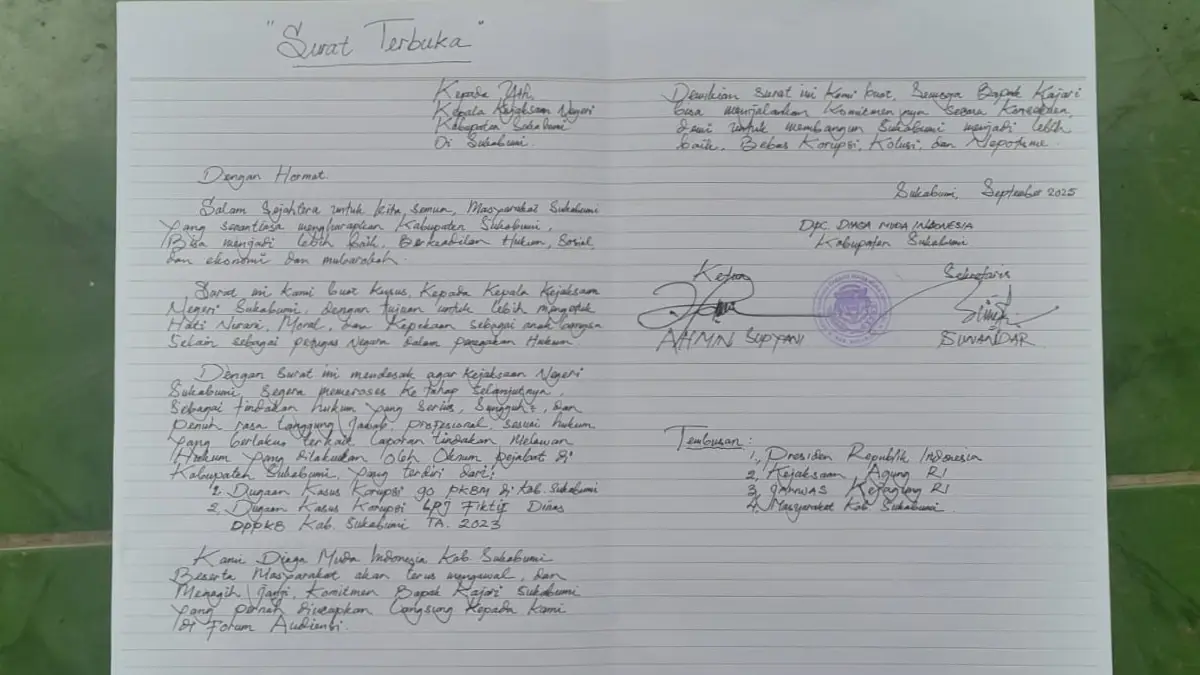 "Surat Terbuka"
Kepada Yth,
Kepala Kejaksaan Negeri
Kabupaten Sukabumi
Di Sukabumi.
Dengan Hormat.
Salam Sejahtera untuk kita semua, Masyarakat Sukabumi
yang senantiasa mengharapkan Kabupaten Sukabumi,
Bisa menjadi lebih baik, Berkeadilan Hukum, Sosial,
dan ekonomi dan mubarokah.
Surat ini kami buat khusus, Kepada Kepala Kejaksaan
Negeri Sukabumi, dengan tujuan untuk lebih mengetuk
Hati Nurani, Moral, dan Kepekaan sebagai anak bangsa
Selain sebagai petugas Negara dalam penegakan Hukum
Dengan Surat ini mendesak agar Kejaksaan Negeri
Sukabumi segera memeroses ke tahap selanjutnya,
Sebagai tindakan hukum yang serius, Sungguh², dan
penuh rasa tanggung jawab, profesional, sesuai hukum
yang berlaku terkait laporan tindakan Melawan
Hukum yang dilakukan oleh Oknum pejabat di
Kabupaten Sukabumi, yang terdiri dari;
1. Dugaan Kasus Korupsi 90 PKBM di Kab. Sukabumi
2. Dugaan Kasus Korupsi LPJ Fiktif Dinas
DPPKB Kab. Sukabumi TA. 2023
Kami Diaga Muda Indonesia Kab Sukabumi
Beserta Masyarakat akan terus mengawal, dan
Menagih Janji, Komitmen Bapak Kajari Sukabumi
yang pernah diucapkan langsung kepada kami
di Forum Audiensi.
Demikian Surat ini kami buat, Semoga Bapak Kajari
bisa menjalankan Komitmennya secara Konsekuen,
demi untuk membangun Sukabumi menjadi lebih
baik, Bebas Korupsi, Kolusi, dan Nepotisme.
Sukabumi, September 2025
DPC DIAGA MUDA INDONESIA
Kabupaten Sukabumi
Ketua
Sekretaris
AHMIN SUPYANI
SUNANDAR
Tembusan :
1, Presiden Republik Indonesia
2, Kejaksaan Agung RI
3, JAMWAS Kejagung RI
4, Masyarakat Kab Sukabumi